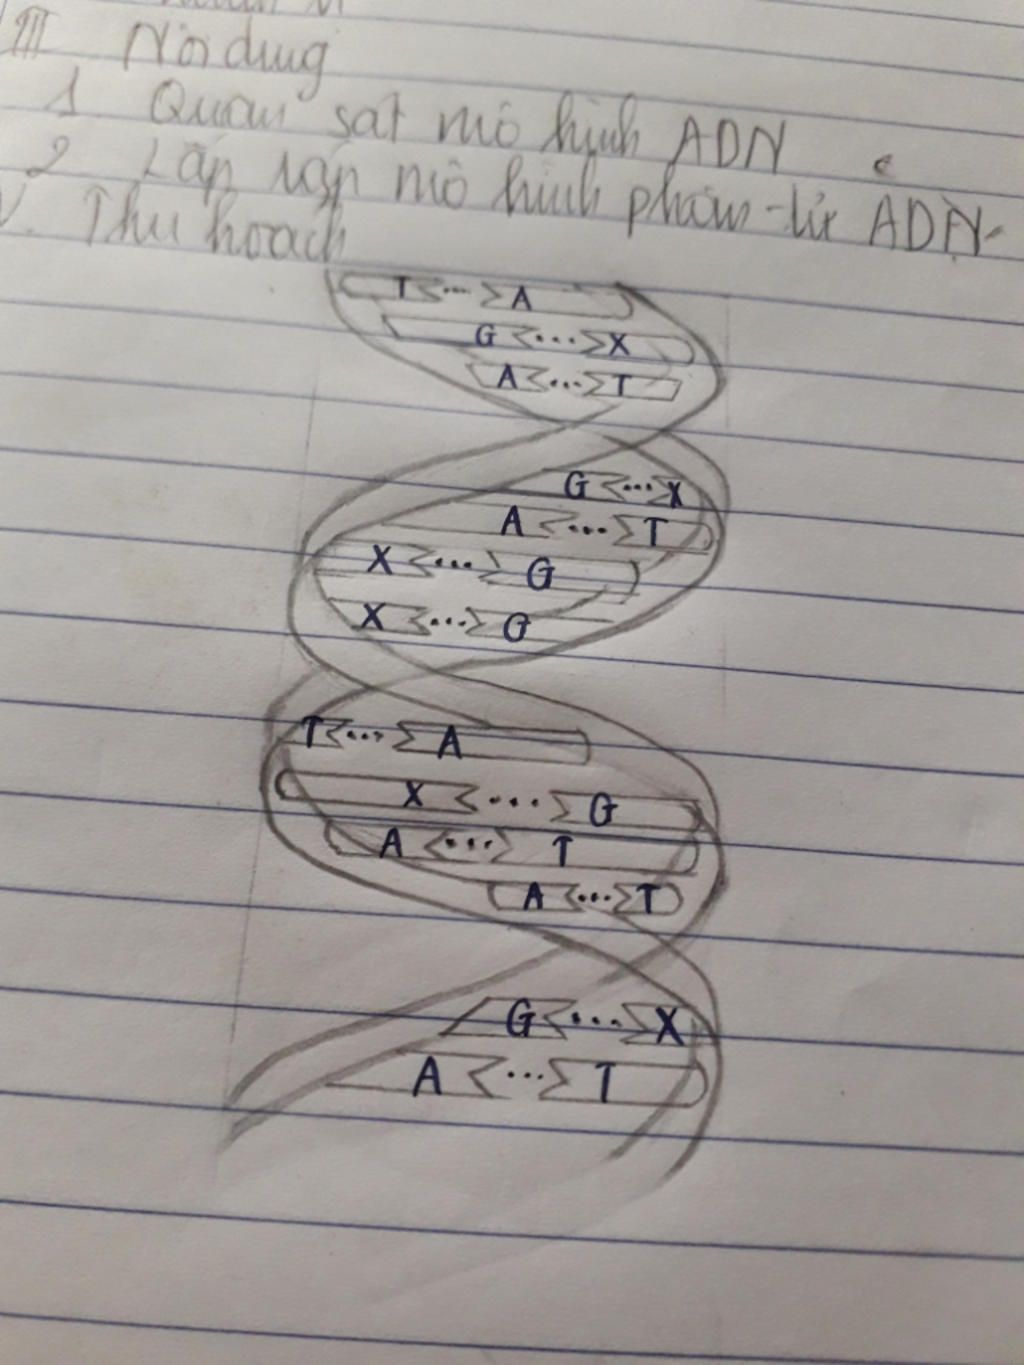 III Nội dung
1 Quan sát mô hình ADN
2 Lắp ráp mô hình phân tử ADN.
V. Thu hoạch
T A
G X
A T
G X
A T
X G
X G
T A
X G
A T
A T
G X
A T